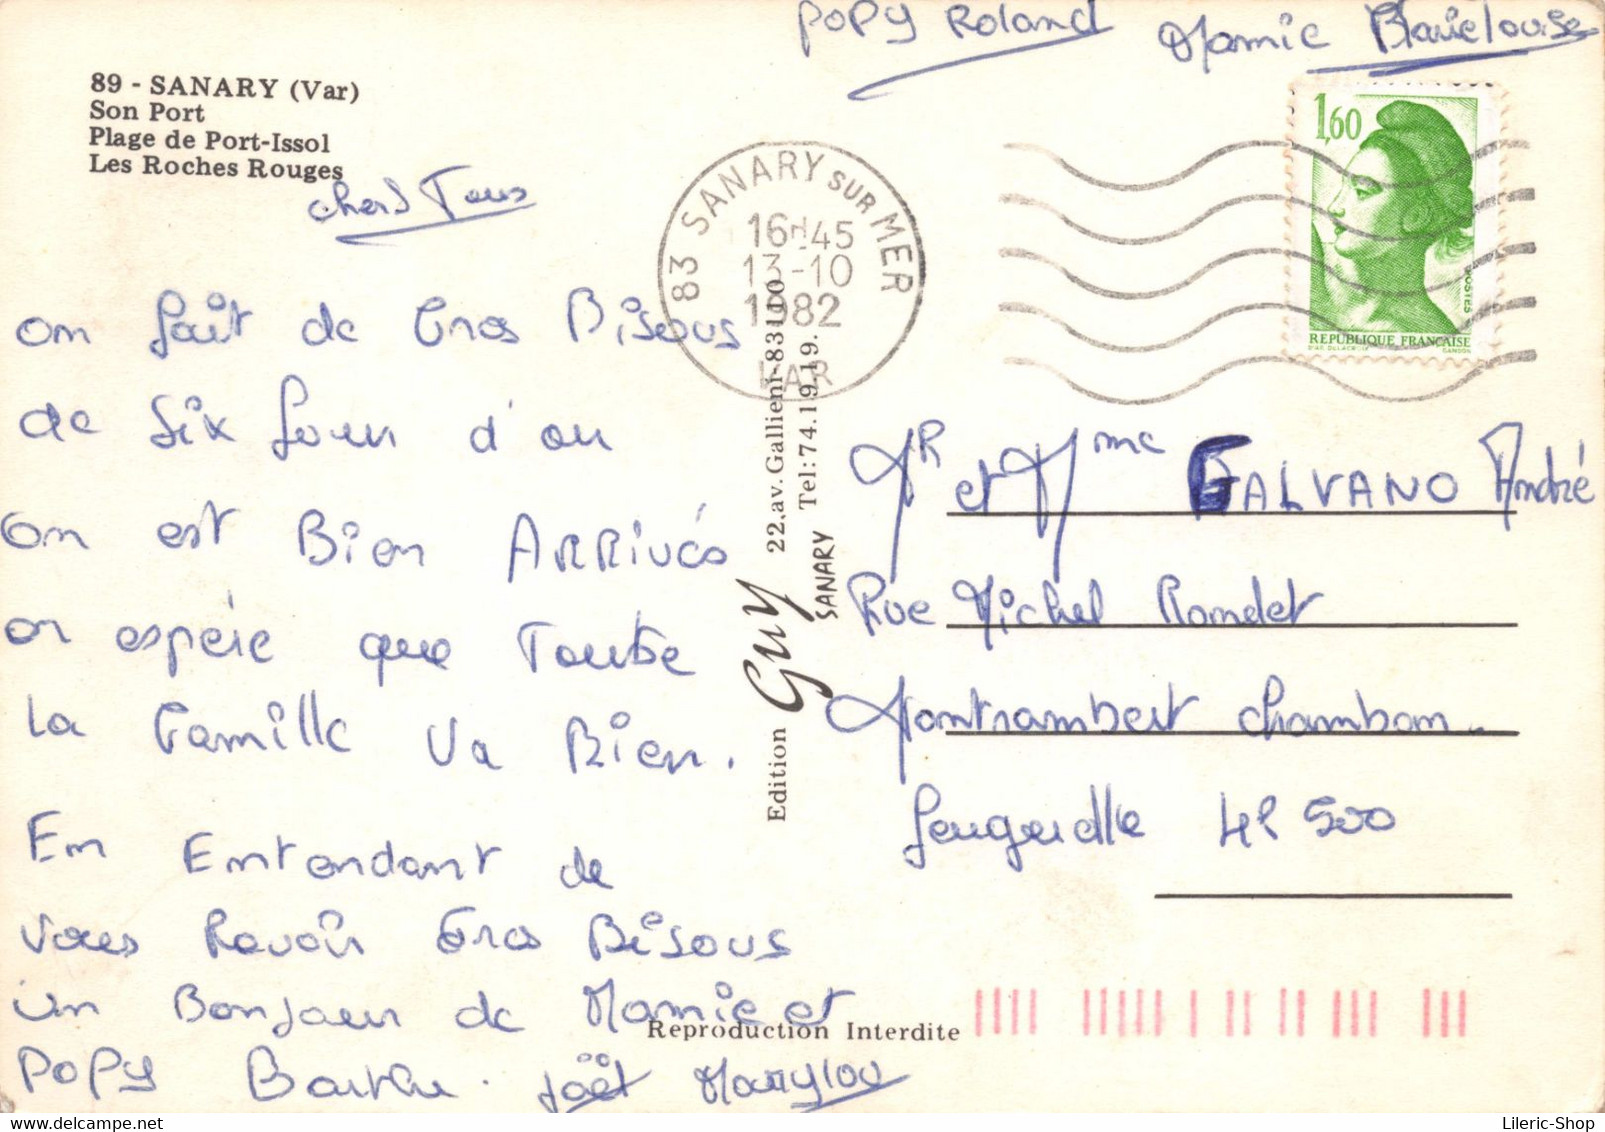 POPY Roland Mamie Marielouise
89 - SANARY (Var)
Son Port
Plage de Port-Issol
Les Roches Rouges
chers Tous
on fait de Gros Bisous
de Six four d'ou
on est Bien ARRIVés
on espérie que Toute
la Famille Va Bien.
En Entendant de
Vous Revoir Gros Bisous
un Bonjour de Mamie et
POPY Barthe. Joët Marrylou
83 SANARY SUR MER
16H45
13-10
1982
VAR
1,60
POSTES
REPUBLIQUE FRANÇAISE
D'AP. DELACROIX GANDON
Edition Guy 22,av. Gallieni-83110
SANARY Tel:74.19.19.
MR et Mme GALVANO André
Rue Michel Rondet
Montrambert chambon
feugerolle 42 500
Reproduction Interdite
Lileric-Shop